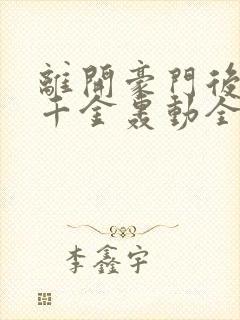 離開豪門後
千金轟動全
李鑫宇